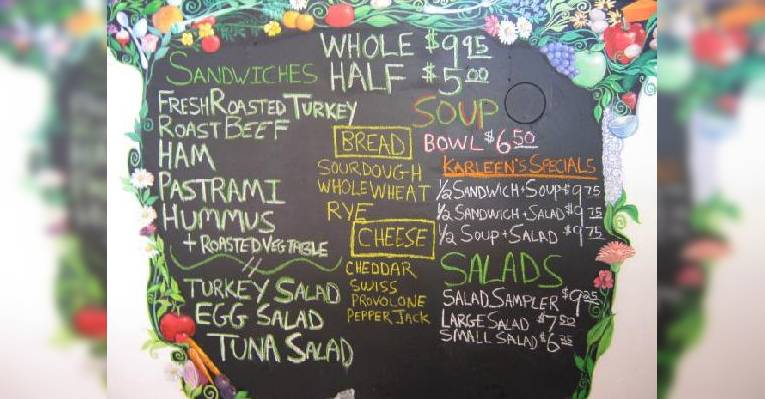 WHOLE $9.95
SANDWICHES HALF $5.00
FRESH ROASTED TURKEY
ROAST BEEF
HAM
PASTRAMI
HUMMUS
+ ROASTED VEGTABLE
TURKEY SALAD
EGG SALAD
TUNA SALAD
BREAD
SOURDOUGH
WHOLE WHEAT
RYE
CHEESE
CHEDDAR
SWISS
PROVOLONE
PEPPER JACK
SOUP
BOWL $6.50
KARLEEN'S SPECIALS
1/2 SANDWICH + SOUP $9.75
1/2 SANDWICH + SALAD $9.75
1/2 SOUP + SALAD $9.75
SALADS
SALAD SAMPLER $9.25
LARGE SALAD $7.50
SMALL SALAD $6.25